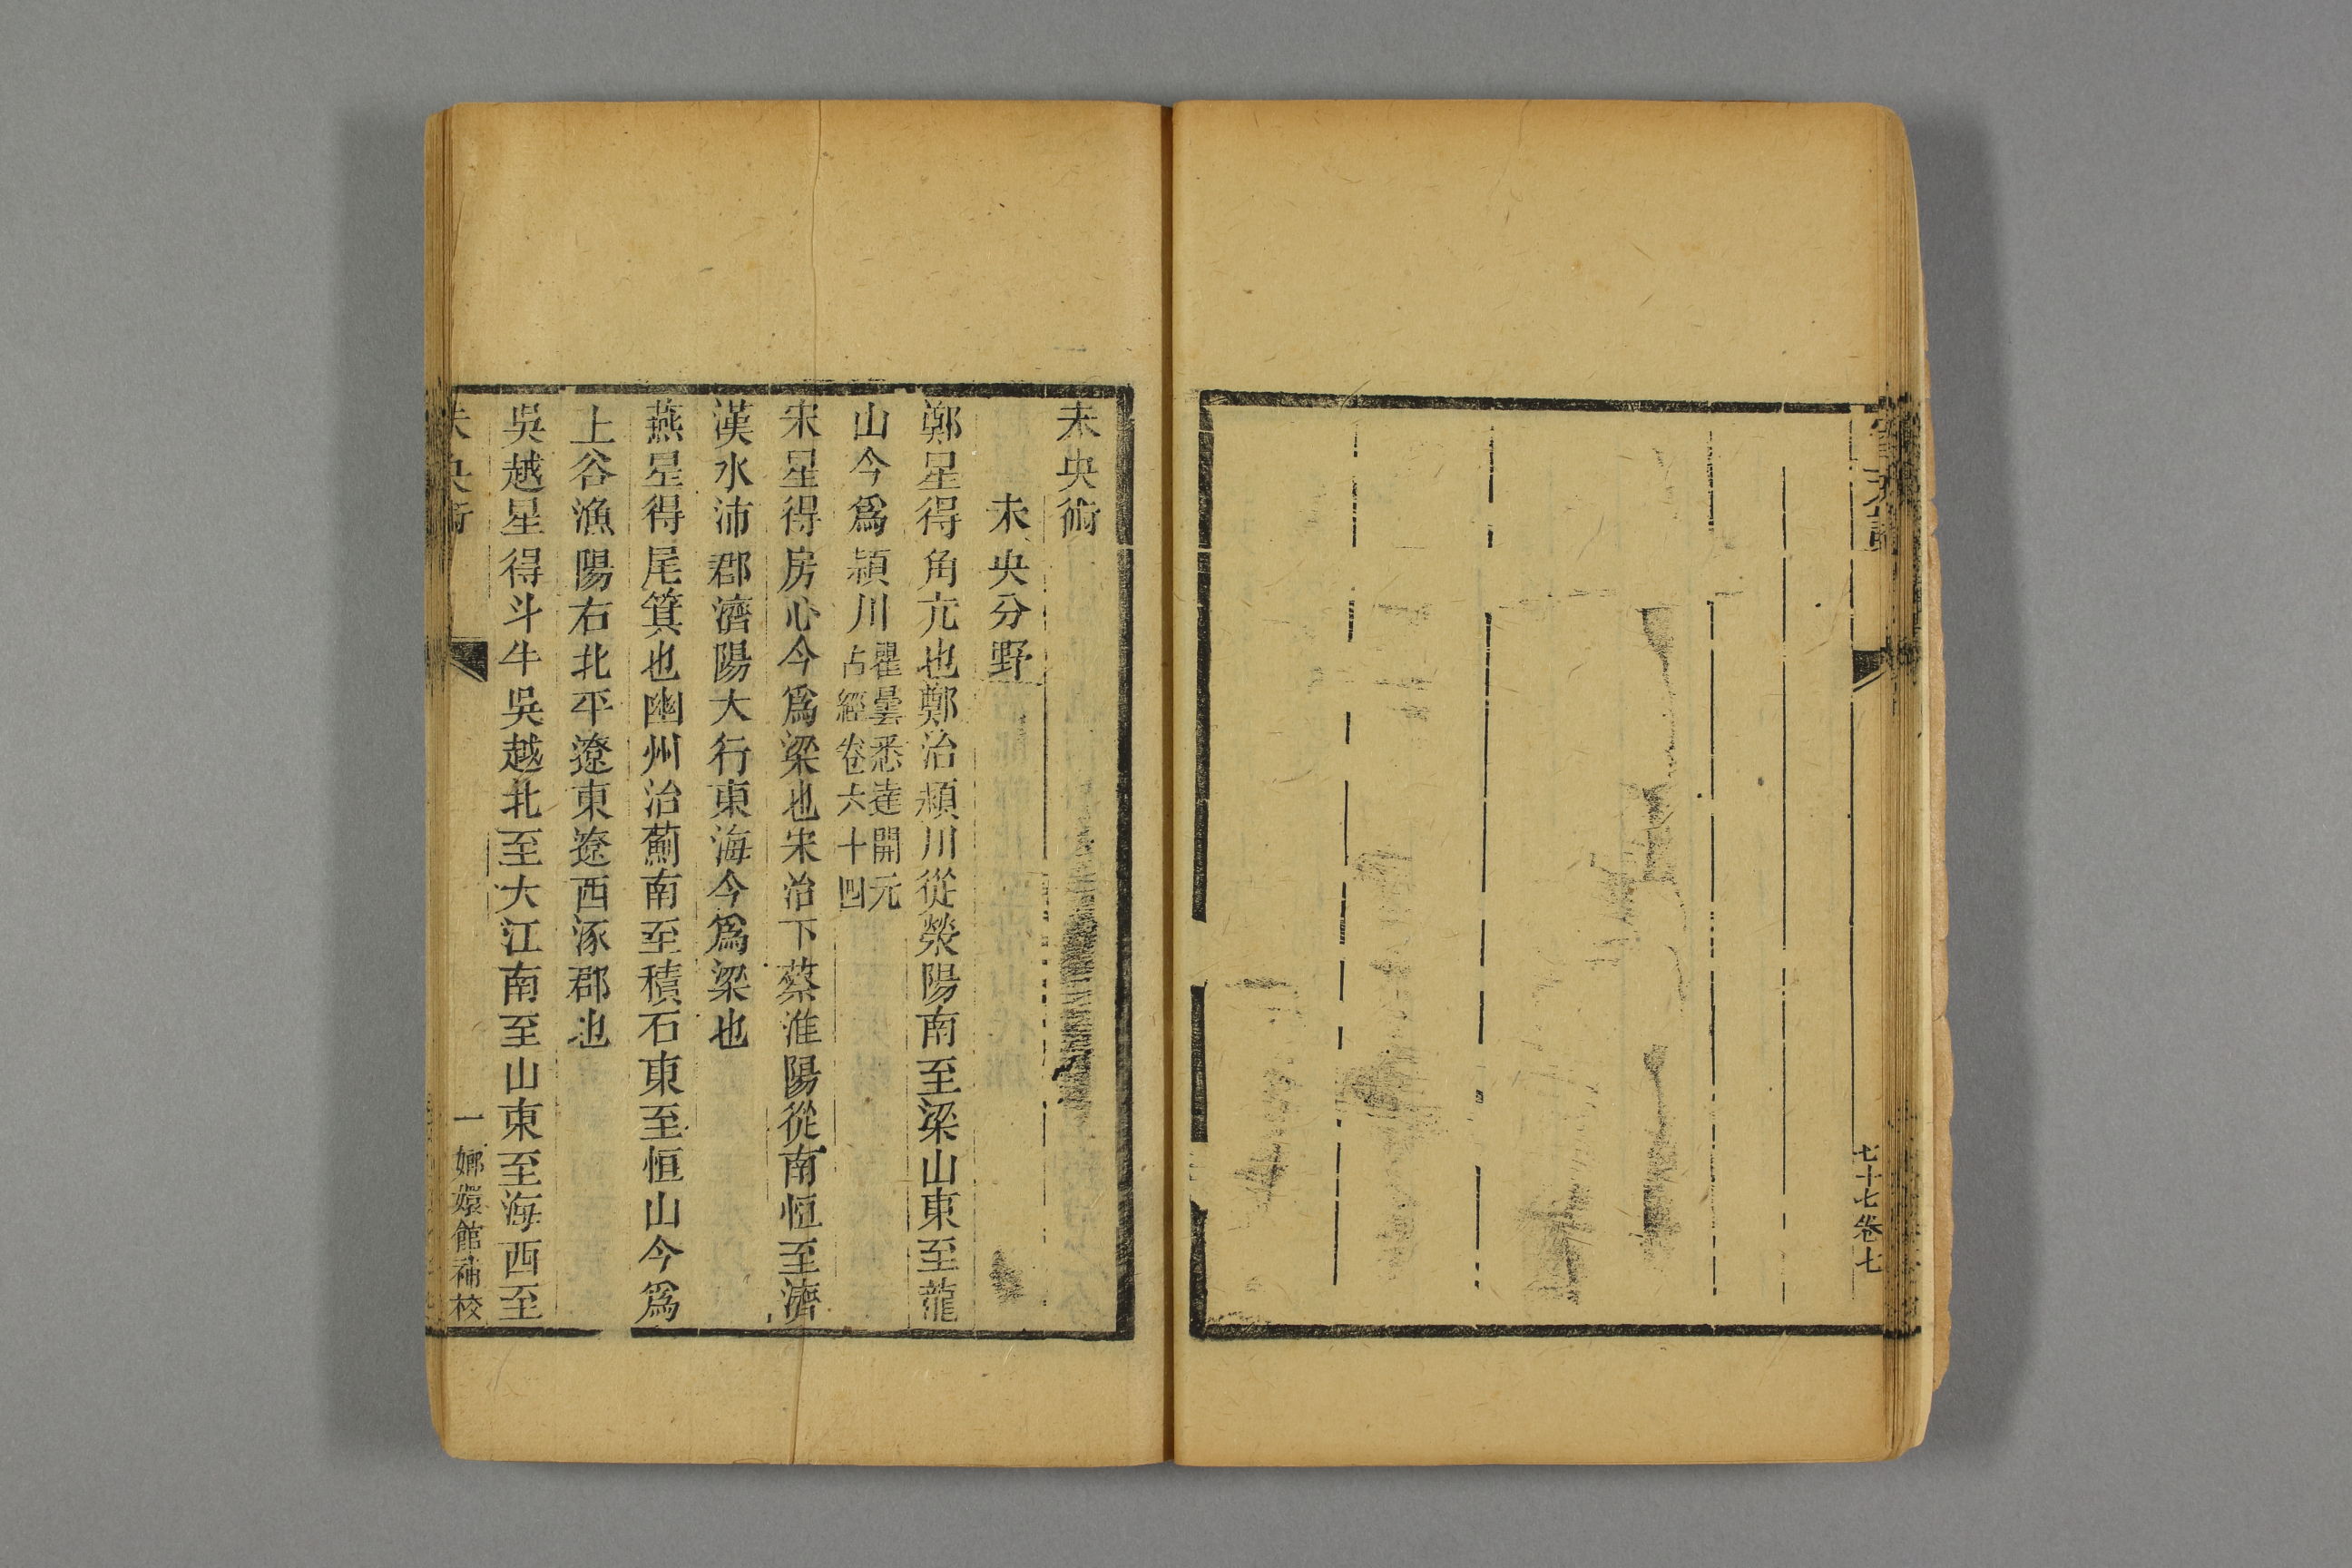 七十七卷七
未央術
未央分野
鄭星得角亢也鄭治潁川從滎陽南至梁山東至龍
山今爲潁川瞿曇悉達開元占經卷六十四
宋星得房心今爲梁也宋治下蔡淮陽從南恒至濟
漢水沛郡濟陽大行東海今爲梁也
燕星得尾箕也幽州治薊南至積石東至恒山今爲
上谷漁陽右北平遼東遼西涿郡也
吳越星得斗牛吳越北至大江南至山東至海西至
未央術
一
嫏嬛館補校